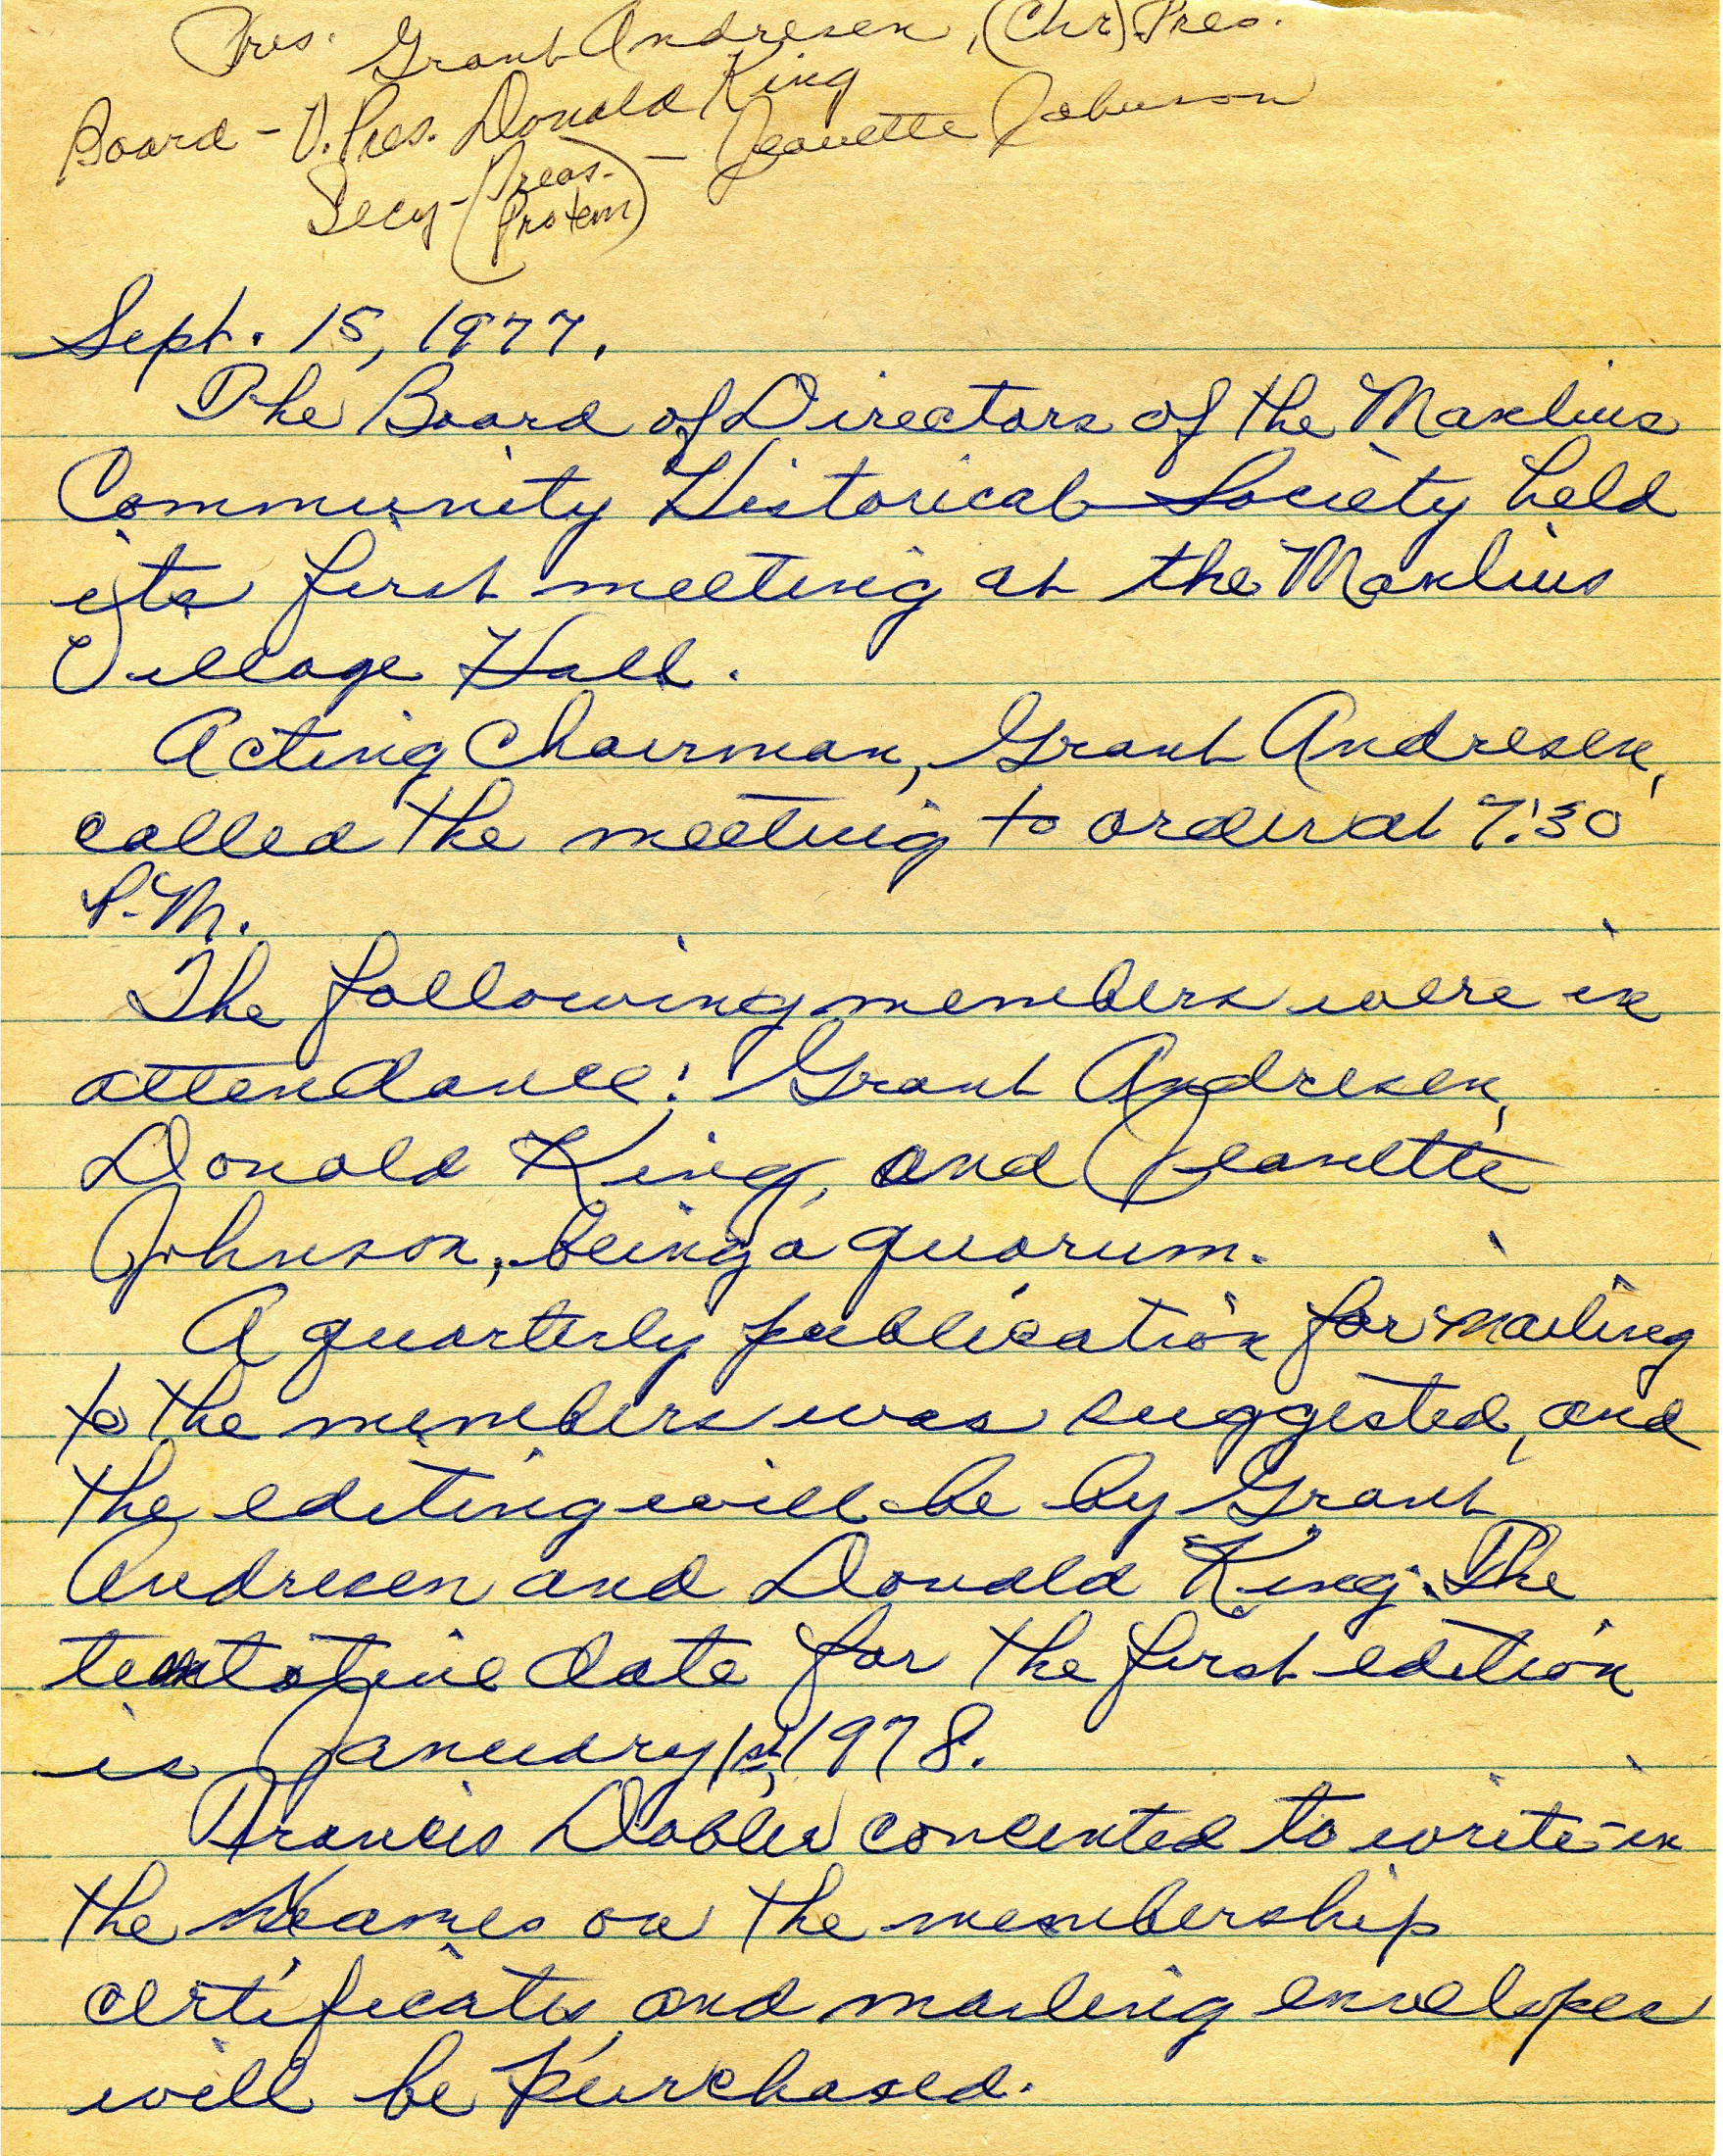 Pres. Grant Andresen, (Chr) Pres.
Board - V. Pres. Donald King
Secy - (Treas. Protem) - Jeanette Johnson
Sept. 15, 1977.
The Board of Directors of the Manlius
Community Historical Society held
its first meeting at the Manlius
Village Hall.
Acting Chairman, Grant Andresen,
called the meeting to order at 7:30
P.M.
The following members were in
attendance: Grant Andresen,
Donald King, and Jeanette
Johnson, being a quorum.
A quarterly publication for mailing
to the members was suggested, and
the editing will be by Grant
Andresen and Donald King. The
tentative date for the first edition
is January 1st, 1978.
Francis Dabler concented to write-in
the names on the membership
certificates, and mailing envelopes
will be purchased.